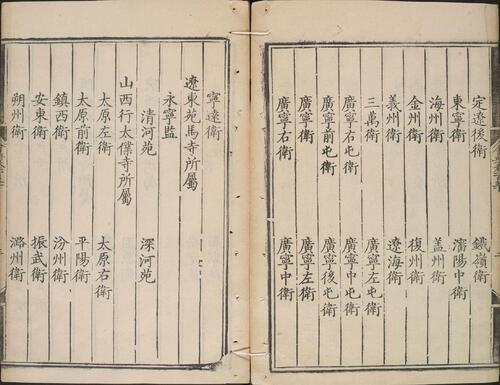 定遼後衛 鐵嶺衛
東寧衛 瀋陽中衛
海州衛 蓋州衛
金州衛 復州衛
義州衛 遼海衛
三萬衛 廣寧左屯衛
廣寧右屯衛 廣寧中屯衛
廣寧前屯衛 廣寧後屯衛
廣寧衛 廣寧左衛
廣寧右衛 廣寧中衛
寧遠衛
遼東苑馬寺所屬
永寧監
清河苑 深河苑
山西行太僕寺所屬
太原左衛 太原右衛
太原前衛 平陽衛
鎮西衛 汾州衛
安東衛 振武衛
朔州衛 潞州衛